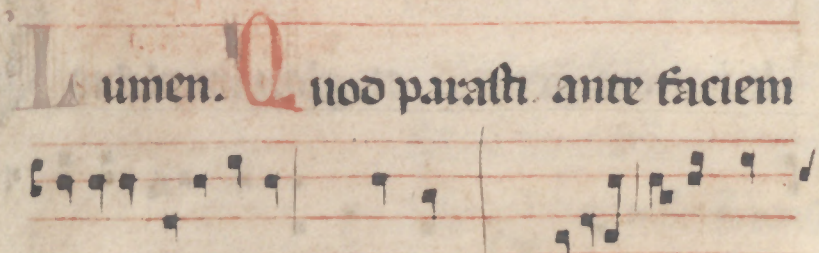 Lumen. Quod parasti ante faciem